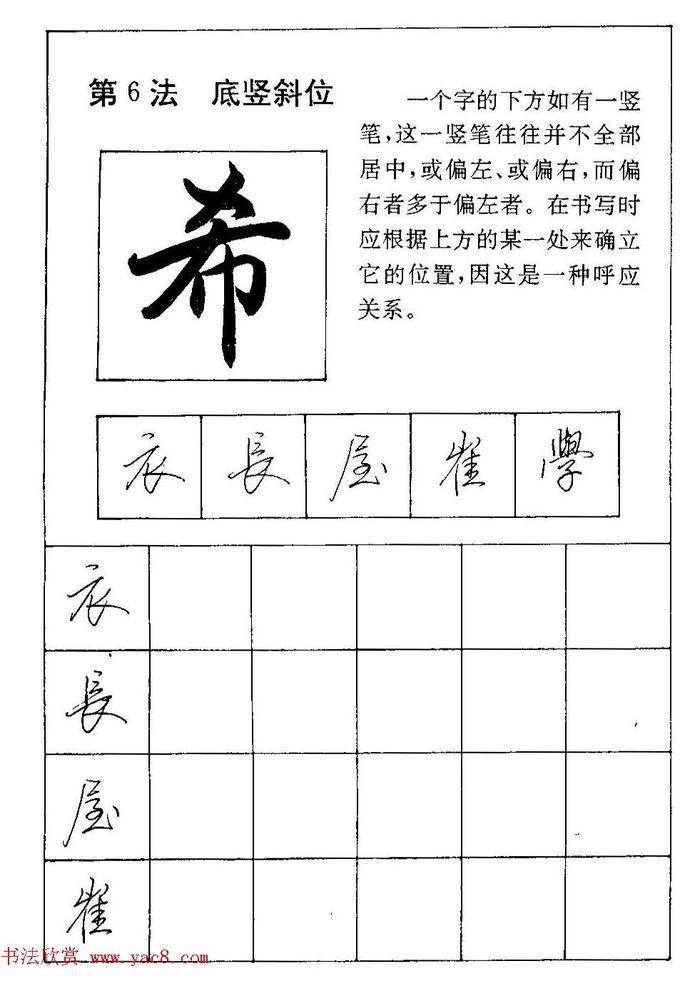 第6法 底竖斜位
一个字的下方如有一竖
笔,这一竖笔往往并不全部
居中,或偏左、或偏右,而偏
右者多于偏左者。在书写时
应根据上方的某一处来确立
它的位置,因这是一种呼应
关系。
希
衣 長 屋 崔 學
衣
長
屋
崔
书法欣赏 www.yac8.com